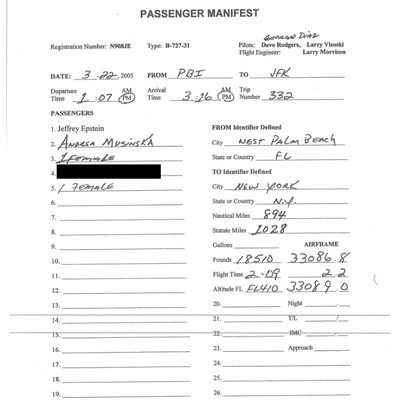 PASSENGER MANIFEST
George Diaz
Registration Number: N908JE Type: B-727-31 Pilots: Dave Rodgers, Larry Visoski
Flight Engineer: Larry Morrison
DATE: 3-22, 2005 FROM PBI TO JFK
Departure Time 1:07 AM PM Arrival Time 3:16 AM PM Trip Number 332
PASSENGERS
1. Jeffrey Epstein FROM Identifier Defined
2. Andrea Musinska City WEST PALM BEACH
3. 1 FEMALE State or Country FL
4. TO Identifier Defined
5. 1 FEMALE City NEW YORK
6. State or Country N.Y.
7. Nautical Miles 894
8. Statute Miles 1028
9. Gallons AIRFRAME
10. Pounds 18510 33086.8
11. Flight Time 2+09 2.2
12. Altitude FL FL410 33089.0
13. 20. Night
14. 21. T/L /
15. 22. IMC
16. 23. Approach
17. 24.
18. 25.
19. 26.